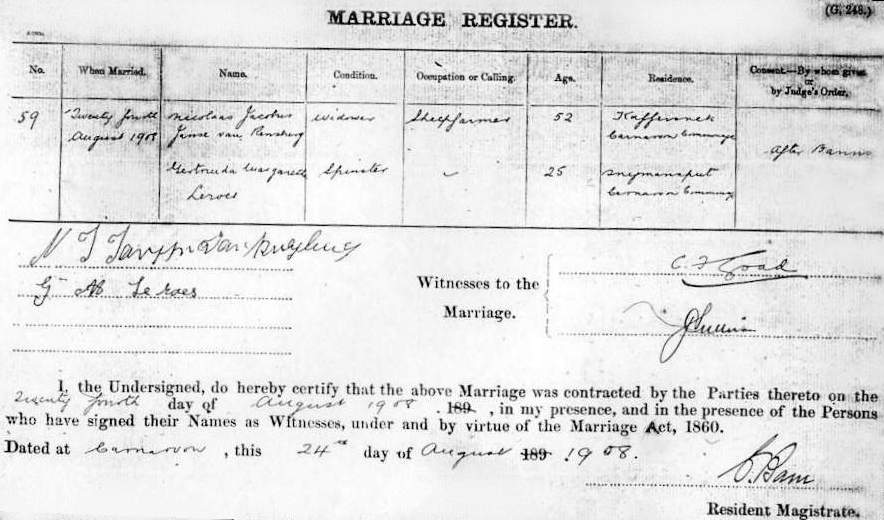 (G. 248.)
MARRIAGE REGISTER.
No. When Married. Name. Condition. Occupation or Calling. Age. Residence. Consent.—By whom given or by Judge's Order.
59 Twenty fourth Nicolaas Jacobus Widower Sheepfarmer 52
August 1908 Janse van Rensburg Carnarvon Commonage
After Banns
Gertruida Margaretha Spinster 25 Snymansput
Leroes Carnarvon Commonage
N J
G M Leroes
Witnesses to the
Marriage.
I, the Undersigned, do hereby certify that the above Marriage was contracted by the Parties thereto on the
twenty fourth day of August 1908 189 , in my presence, and in the presence of the Persons
who have signed their Names as Witnesses, under and by virtue of the Marriage Act, 1860.
Dated at Carnarvon , this 24th day of August 189 1908.
Resident Magistrate.